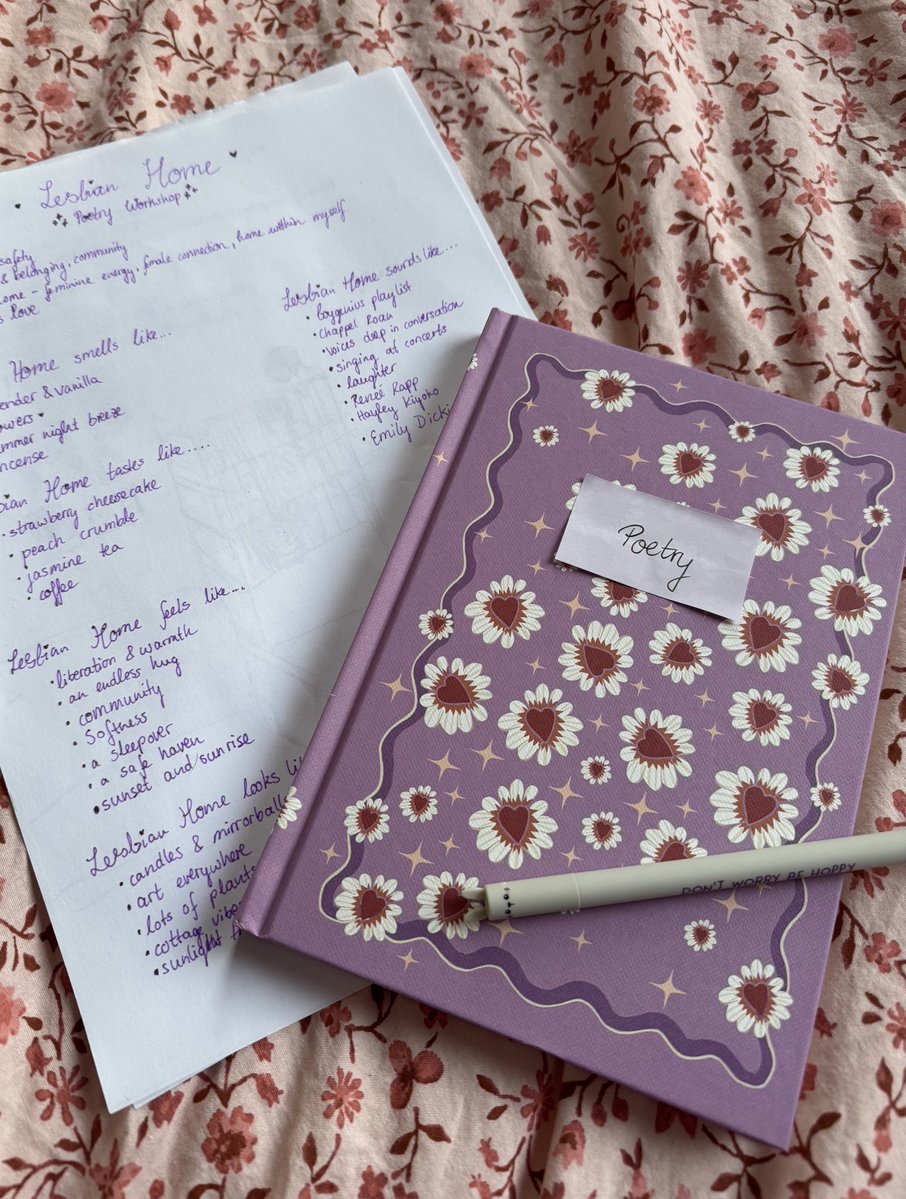 Lesbian Home
Poetry Workshop
safety
& belonging, community
home - feminine energy, female connection, home within myself
love
Home smells like...
& vanilla
night breeze
Home tastes like....
strawberry cheesecake
peach crumble
jasmine tea
coffee
Lesbian Home feels like...
liberation & warmth
an endless hug
community
Softness
a sleepover
a safe haven
sunset and/sunrise
Lesbian Home looks
candles & mirrorball
art everywhere
lots of plants
cottage
sunlight
Lesbian Home sounds like...
boygenius playlist
chappel Roan
voices deep in conversation
singing at concerts
laughter
Reneé Rapp
Hayley Kiyoko
Emily
Poetry
DON'T WORRY BE HOPPY